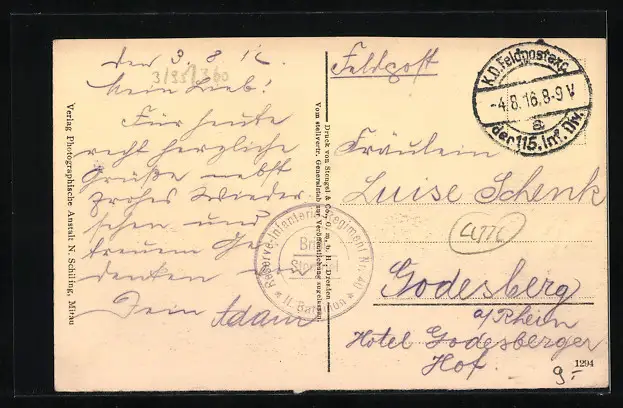 den 3 8 16
Mein Lieb!
Für heute
recht herzliche
Grüße nebst
frohes Wieder
sehen und
treuem Ge
denken
Dein Adam
Feldpost
Fräulein
Luise Schenk
Godesberg
a/Rhein
Hotel Godesberger
Hof
K.D.Feldpostexp.
-4.8.16.8-9 V
a
der 115. Inf. Div.
Reserve-Infanterie-Regiment Nr. 40
II. Bataillon
Druck von Stengel & Co., G. m. b. H., Dresden
Vom stellvertr. Generalstab zur Veröffentlichung zugelassen
Verlag Photographische Anstalt N. Schiling, Mitau
1294
9.-